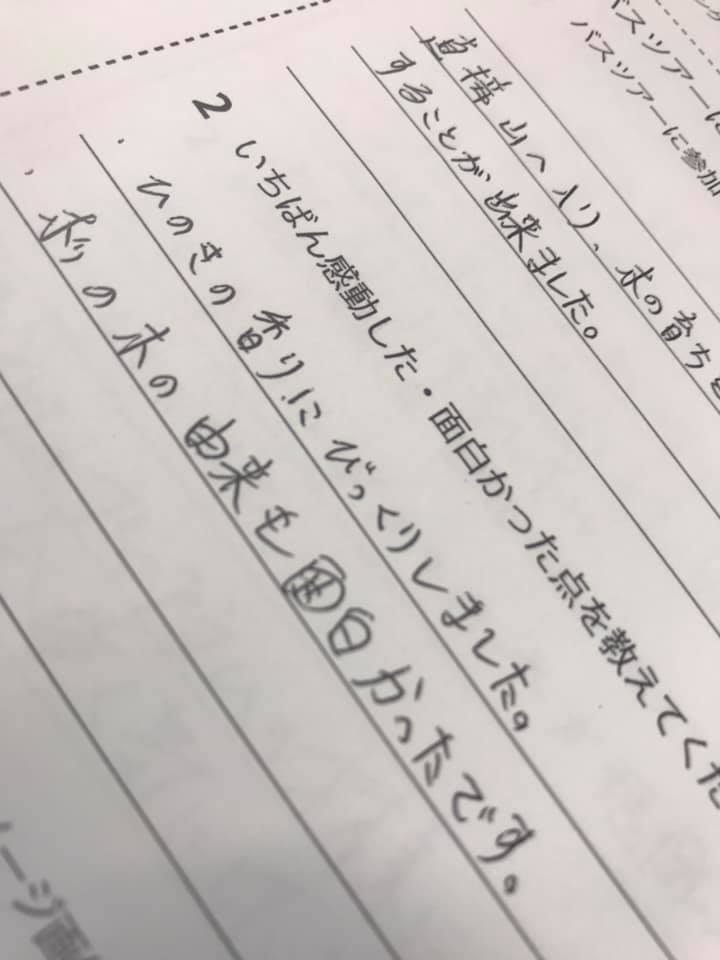 バスツアーに
バスツアーに参加
直接山へ入り、木の育ちを
することが出来ました。
2 いちばん感動した・面白かった点を教えてくだ
・ひのきの香りにびっくりしました。
・の木の由来も面白かったです。
ージ画